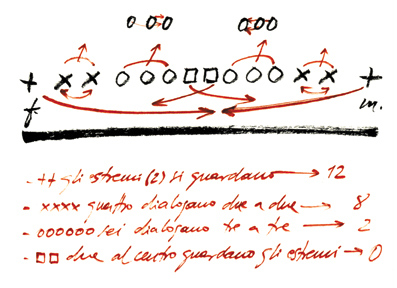 o oo ooo
+ x x o o o □ □ o o o x x +
f. m.
- ++ gli estremi (2) si guardano → 12
- xxxx quattro dialogano due a due → 8
- oooooo sei dialogano tre a tre → 2
- □□ due al centro guardano gli estremi → 0